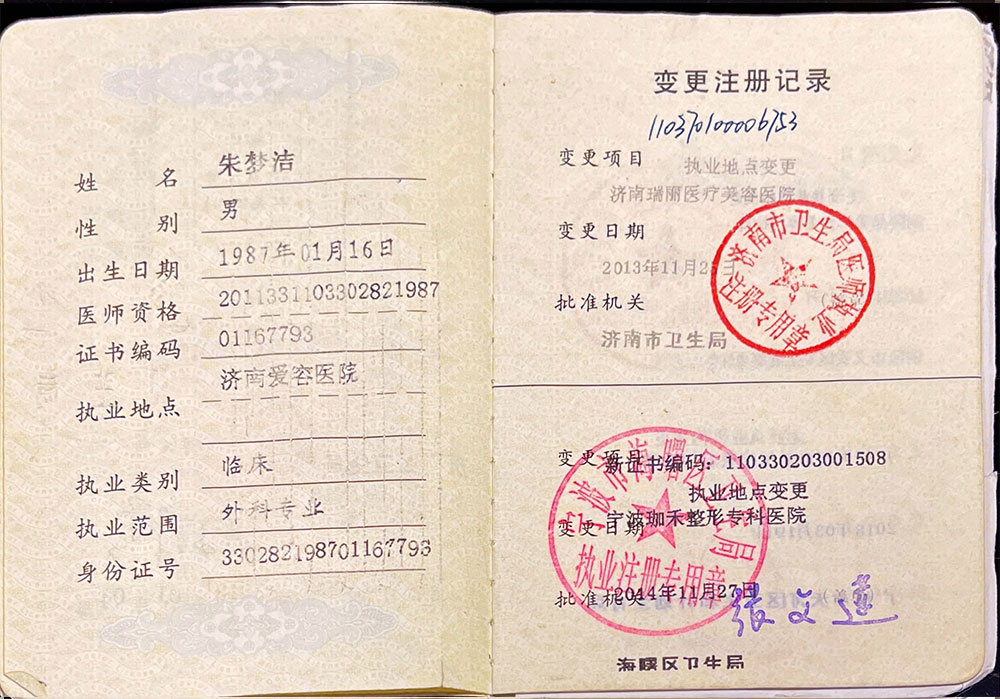 姓名 朱梦洁
性别 男
出生日期 1987年01月16日
医师资格 201133110330282198701167793
证书编码
执业地点 济南爱容医院
执业类别 临床
执业范围 外科专业
身份证号 330282198701167793
变更注册记录
110370100006753
变更项目 执业地点变更
济南瑞丽医疗美容医院
变更日期
2013年11月2日
批准机关
济南市卫生局
济南市卫生局医师执业
注册专用章
变更项目 新证书编码：110330203001508
执业地点变更
宁波珈禾整形专科医院
变更日期
批准机关 2014年11月27日
张文莲
海曙区卫生局
宁波市海曙区卫生局
执业注册专用章